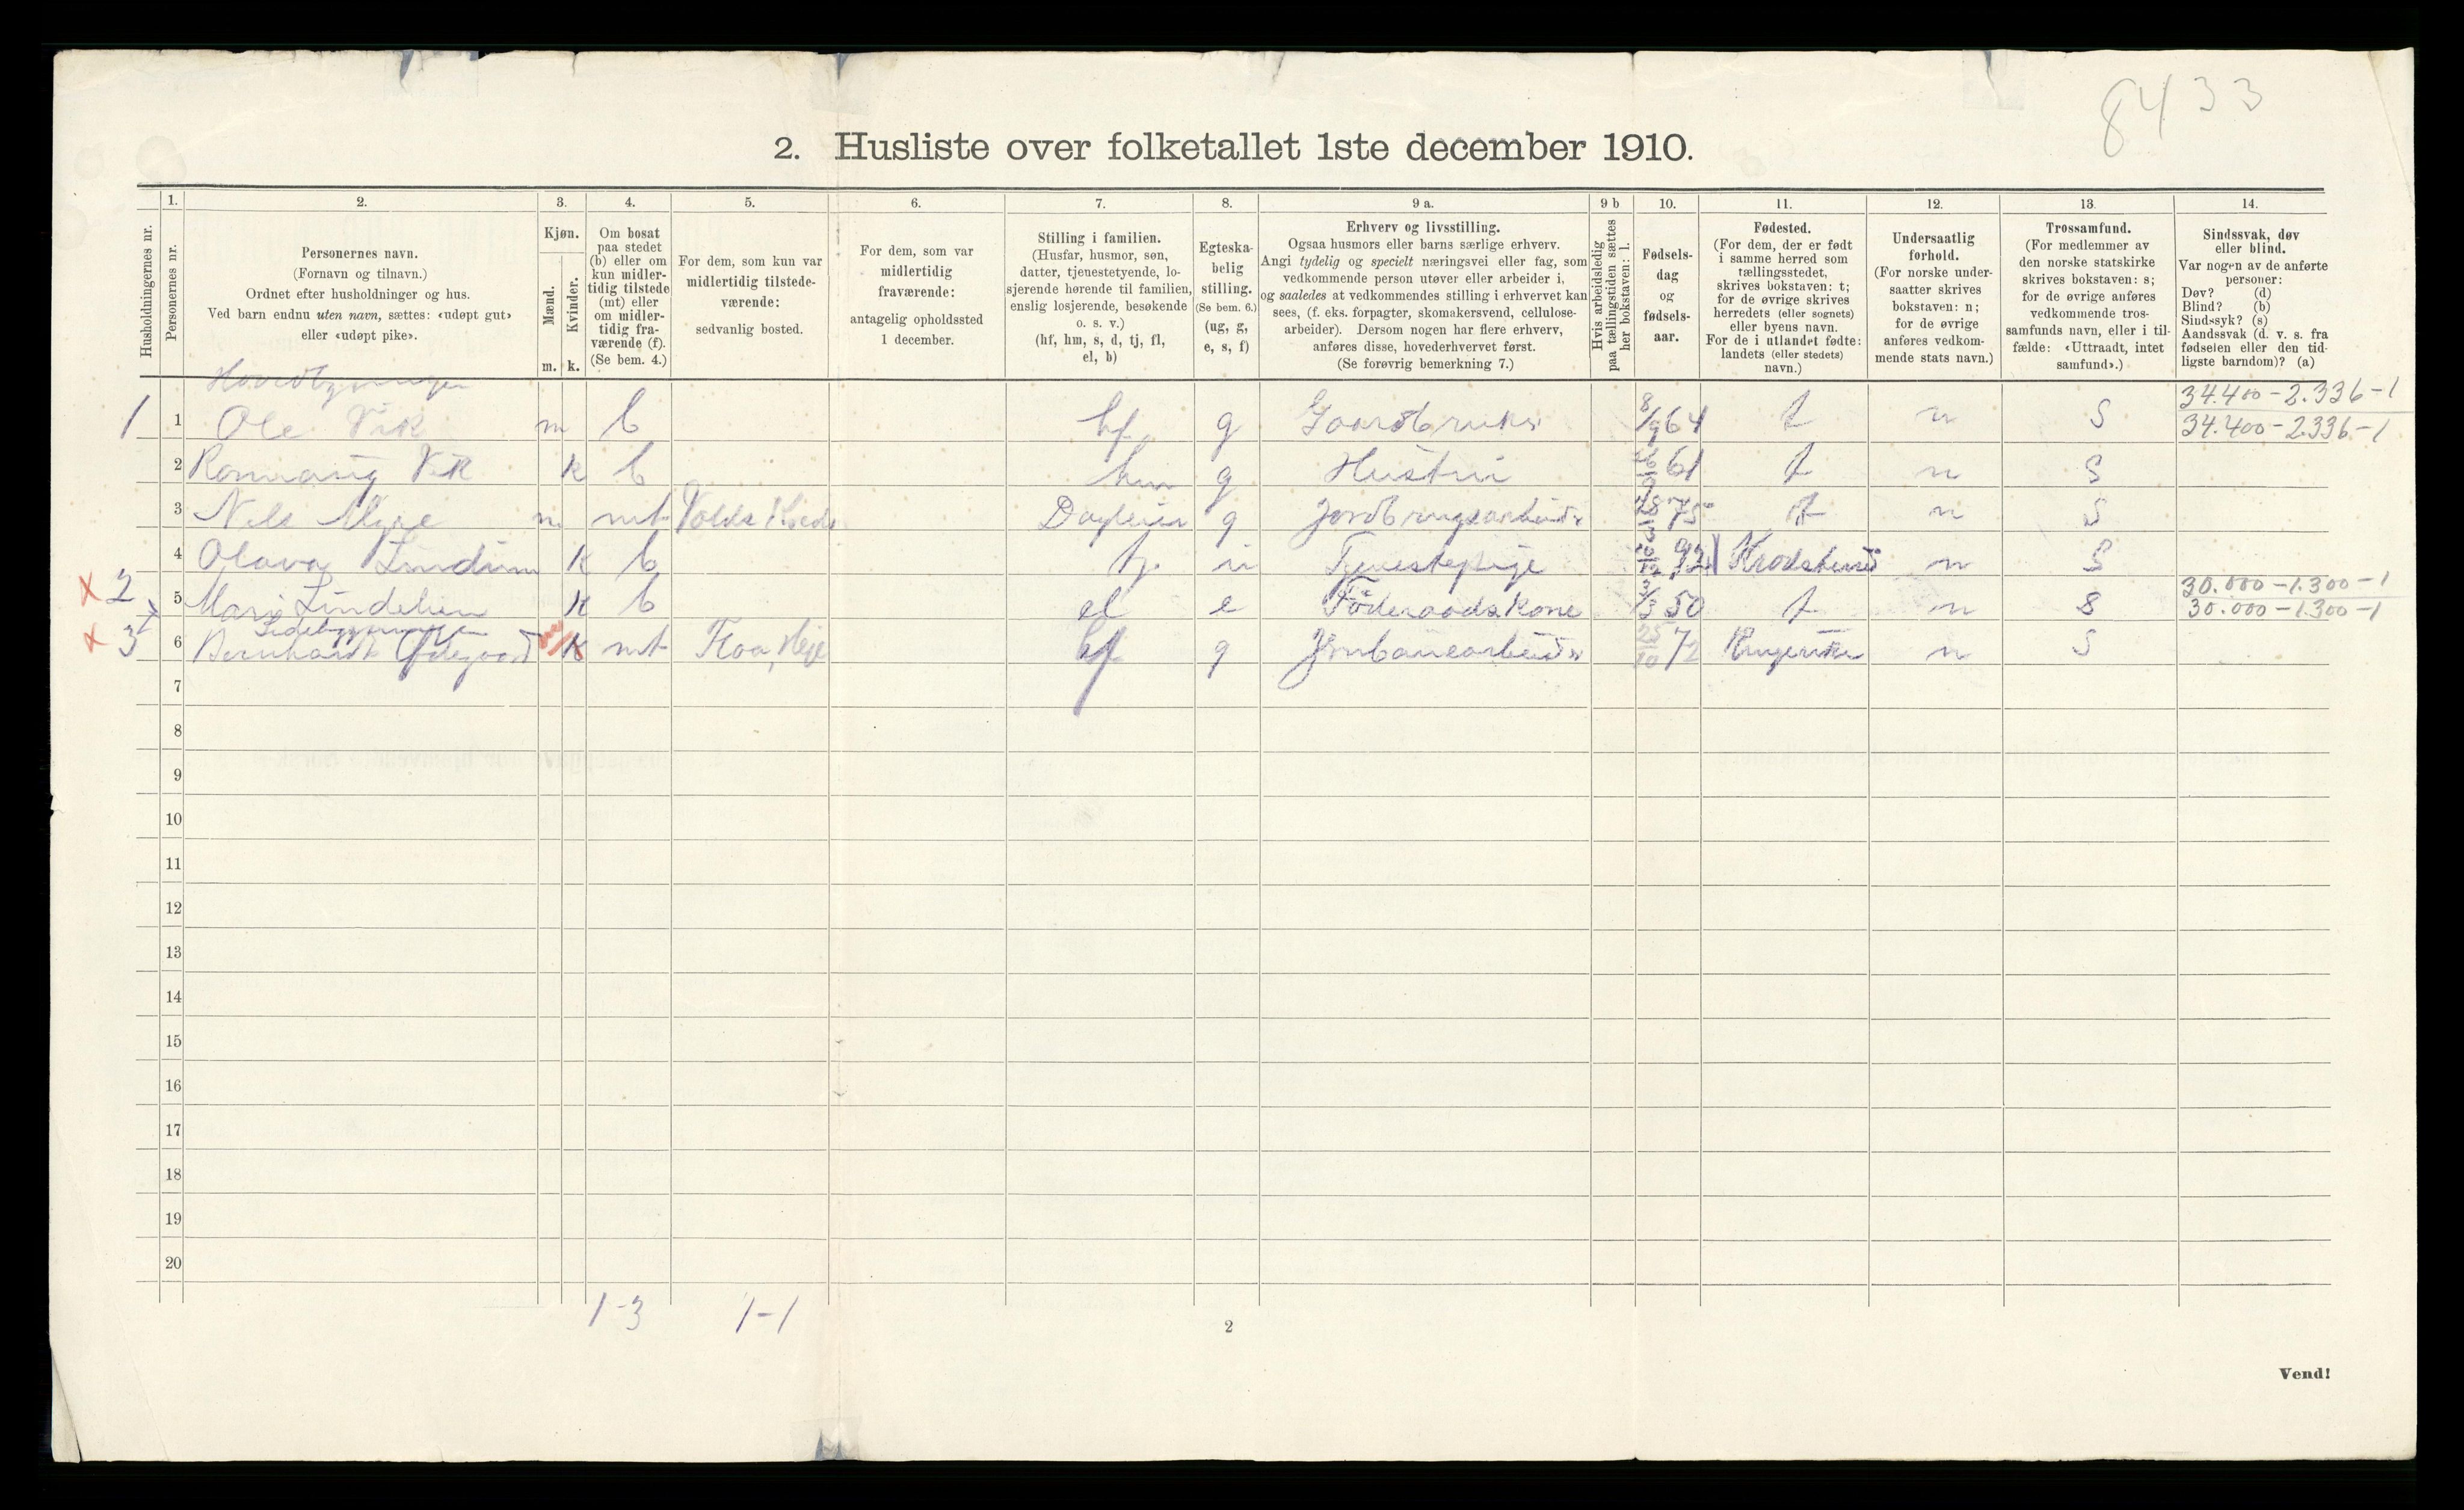 8433
2. Husliste over folketallet 1ste december 1910.
Husholdningernes nr.
1. Personernes nr.
2. Personernes navn.
(Fornavn og tilnavn.)
Ordnet efter husholdninger og hus.
Ved barn endnu uten navn, sættes: «udøpt gut»
eller «udøpt pike».
3. Kjøn.
Mænd. m.
Kvinder. k.
4. Om bosat
paa stedet
(b) eller om
kun midler-
tidig tilstede
(mt) eller
om midler-
tidig fra-
værende (f).
(Se bem. 4.)
5. For dem, som kun var
midlertidig tilstede-
værende:
sedvanlig bosted.
6. For dem, som var
midlertidig
fraværende:
antagelig opholdssted
1 december.
7. Stilling i familien.
(Husfar, husmor, søn,
datter, tjenestetyende, lo-
sjerende hørende til familien,
enslig losjerende, besøkende
o. s. v.)
(hf, hm, s, d, tj, fl,
el, b)
8. Egteska-
belig
stilling.
(Se bem. 6.)
(ug, g,
e, s, f)
9 a. Erhverv og livsstilling.
Ogsaa husmors eller barns særlige erhverv.
Angi tydelig og specielt næringsvei eller fag, som
vedkommende person utøver eller arbeider i,
og saaledes at vedkommendes stilling i erhvervet kan
sees, (f. eks. forpagter, skomakersvend, cellulose-
arbeider). Dersom nogen har flere erhverv,
anføres disse, hovederhvervet først.
(Se forøvrig bemerkning 7.)
9 b Hvis arbeidsledig
paa tællingstiden sættes
her bokstaven: l.
10. Fødsels-
dag
og
fødsels-
aar.
11. Fødested.
(For dem, der er født
i samme herred som
tællingsstedet,
skrives bokstaven: t;
for de øvrige skrives
herredets (eller sognets)
eller byens navn.
For de i utlandet fødte:
landets (eller stedets)
navn.)
12. Undersaatlig
forhold.
(For norske under-
saatter skrives
bokstaven: n;
for de øvrige
anføres vedkom-
mende stats navn.)
13. Trossamfund.
(For medlemmer av
den norske statskirke
skrives bokstaven: s;
for de øvrige anføres
vedkommende tros-
samfunds navn, eller i til-
fælde: «Uttraadt, intet
samfund».)
14. Sindssvak, døv
eller blind.
Var nogen av de anførte
personer:
Døv? (d)
Blind? (b)
Sindssyk? (s)
Aandssvak (d. v. s. fra
fødselen eller den tid-
ligste barndom)? (a)
34.400 - 2.336 - 1
1 1 Ole Vik m b hf g Gaardbruker 8/9 64 t n S 34.400 - 2.336 - 1
2 Vik k b hm g Hustru 61 t n S
3 Nels m mt g 75 t n S
4 Olava k b tj Tjenestepige 92 n S
30.000 - 1.300 - 1
x 2 5 Mari Lindelien k b el e Föderaadskone 3/3 50 t n S 30.000 - 1.300 - 1
Sidebygningen
x 3 6 Bernhardt k mt Flaa, hf g Jernbanearbeider 25/10 72 Ringerike n S
7
8
9
10
11
12
13
14
15
16
17
18
19
20
1-3 1-1
2
Vend!